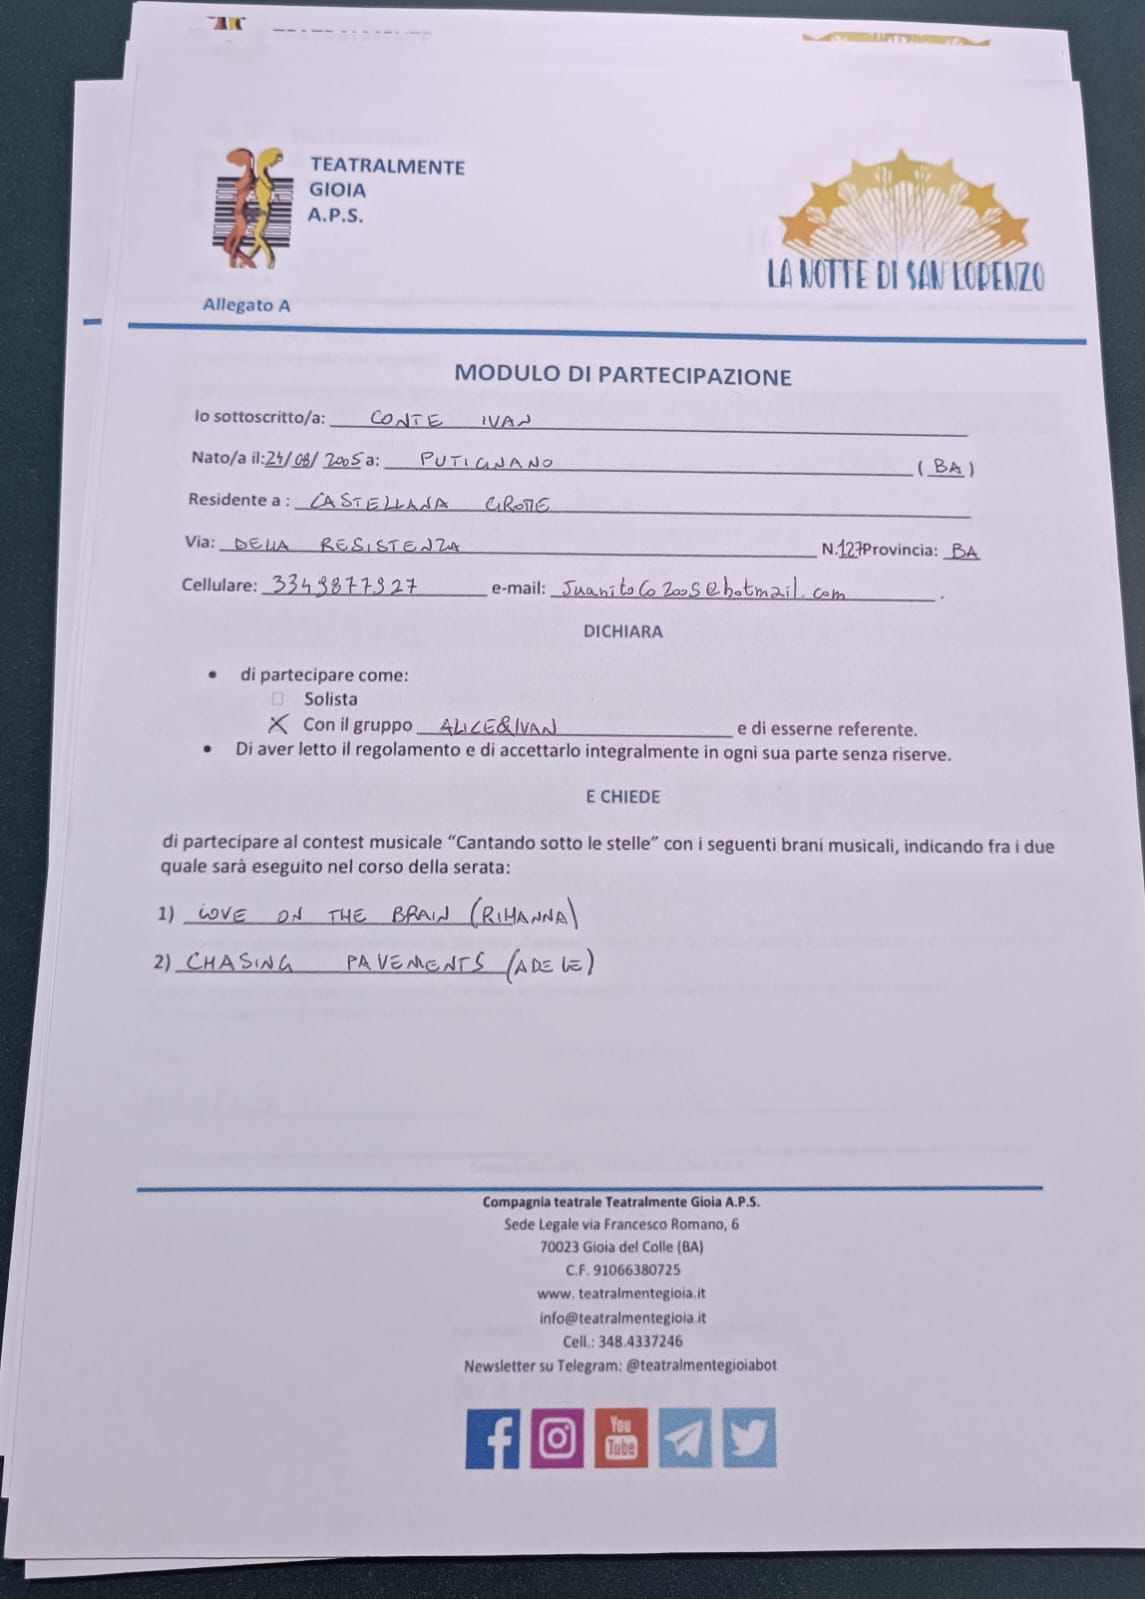 TEATRALMENTE
GIOIA
A.P.S.
LA NOTTE DI SAN LORENZO
Allegato A
MODULO DI PARTECIPAZIONE
Io sottoscritto/a: CONTE IVAN
Nato/a il: 24/08/2005 a: PUTIGNANO (BA)
Residente a : CASTELLANA GROTTE
Via: DELLA RESISTENZA N.127 Provincia: BA
Cellulare: 3349877927 e-mail: JuanitoCo2005@hotmail.com .
DICHIARA
• di partecipare come:
☐ Solista
X Con il gruppo ALICE&IVAN e di esserne referente.
• Di aver letto il regolamento e di accettarlo integralmente in ogni sua parte senza riserve.
E CHIEDE
di partecipare al contest musicale “Cantando sotto le stelle” con i seguenti brani musicali, indicando fra i due
quale sarà eseguito nel corso della serata:
1) LOVE ON THE BRAIN (RIHANNA)
2) CHASING PAVEMENTS (ADELE)
Compagnia teatrale Teatralmente Gioia A.P.S.
Sede Legale via Francesco Romano, 6
70023 Gioia del Colle (BA)
C.F. 91066380725
www. teatralmentegioia.it
info@teatralmentegioia.it
Cell.: 348.4337246
Newsletter su Telegram: @teatralmentegioiabot
You
Tube